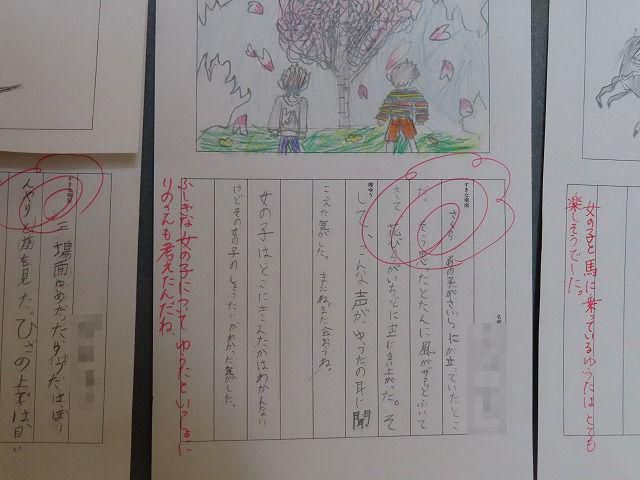 女の子と馬に乗っているゆうたはとても
楽しそうでした。
すきな場面
名前
さくら
あの子がさいしょにか立っていたとこ
た。そう思ったとたんに風がザザっとふいて
きて花びらがいちどに空にまい上がった。そ
して、こんな声が、ゆうたの耳に聞
理ゆう
こえた気がした。またね。また会おうね。
女の子はどこにきえたかはわかんない
けどその女の子のしょうたいがわかった気がした。
ふしぎな女の子について、ゆうたといっしょに
りのさんも考えたんだね。
すきな場面
三場面
んやりと
を見た。ひざの上